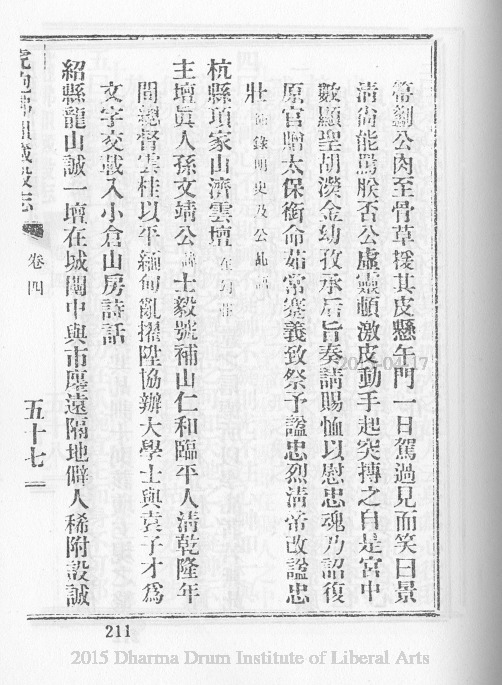 帚劉公肉至骨草援其皮懸午門一日駕過見而笑曰景
清尙能罵朕否公虛靈頓激皮動手起突搏之自是宮中
數顯聖胡濙金幼孜承后旨奏請賜恤以慰忠魂乃詔復
原官贈太保銜命茹常蹇義致祭予諡忠烈淸帝改諡忠
壯 錄明史及公乩
杭縣項家山濟雲壇
主壇眞人孫文靖公 諱 士毅號補山仁和臨平人淸乾隆年
間總督雲桂以平緬甸亂擢陞協辦大學士與袁子才爲
文字交載入小倉山房詩話
紹縣龍山誠一壇在城闉中與市廛遠隔地僻人稀附設誠
志
卷四
五十七
211
2015 Dharma Drum Institute of Liberal Arts